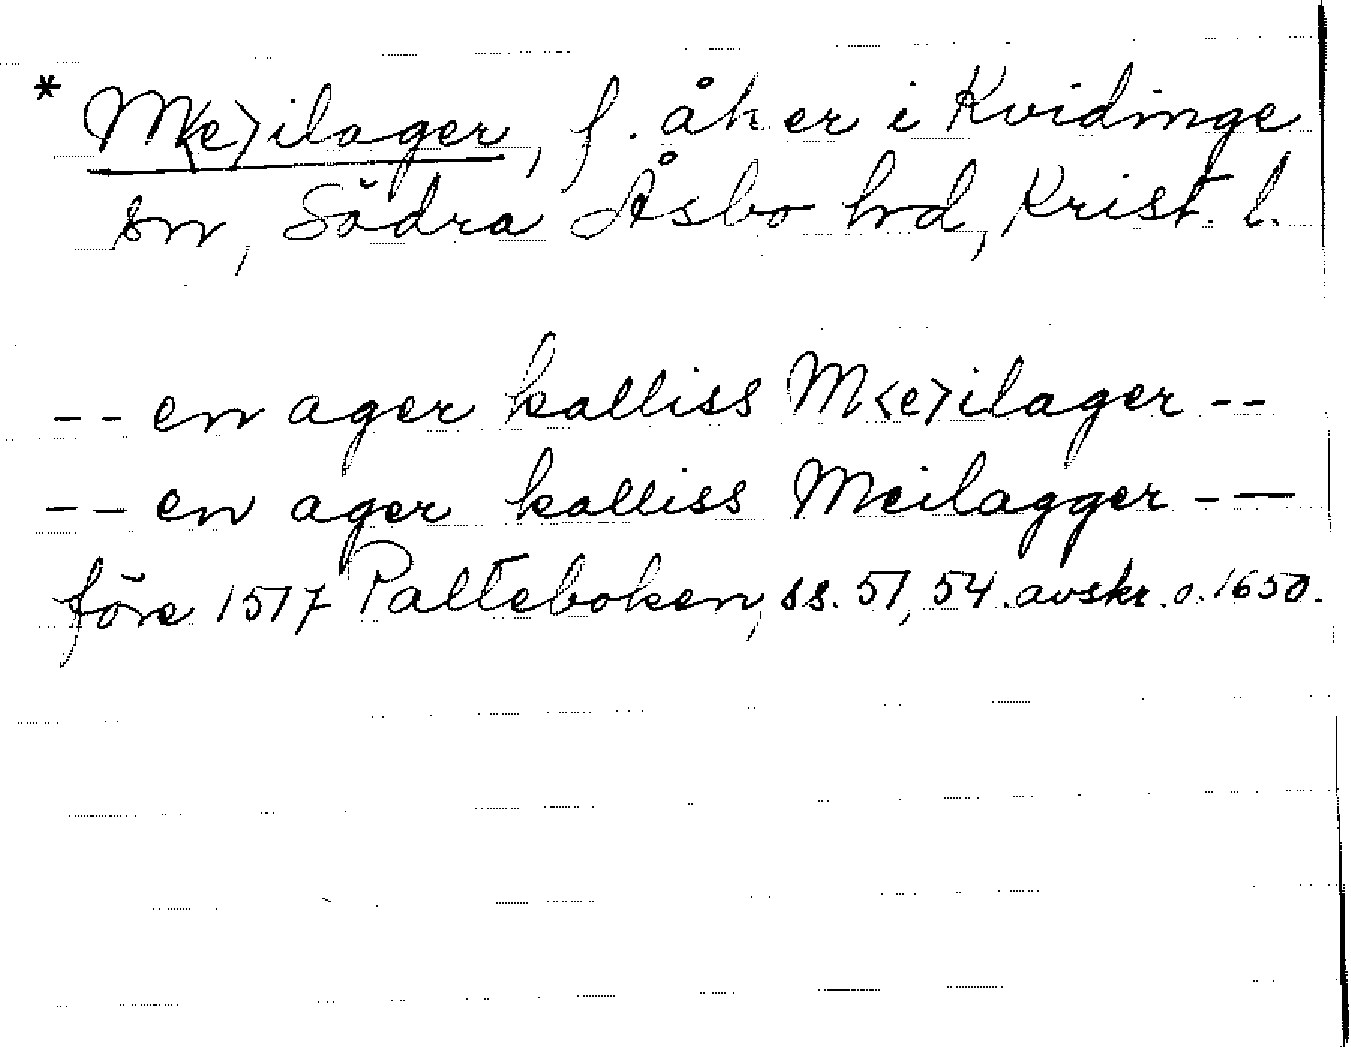 * M<e>ilager, f. åker i Kvidinge
sn, Södra Åsbo hd, Krist. l.
-- en ager kalliss M<e>ilager --
-- en ager kalliss Meilagger --
före 1517 Palteboken, ss. 51, 54. avskr. o. 1650.